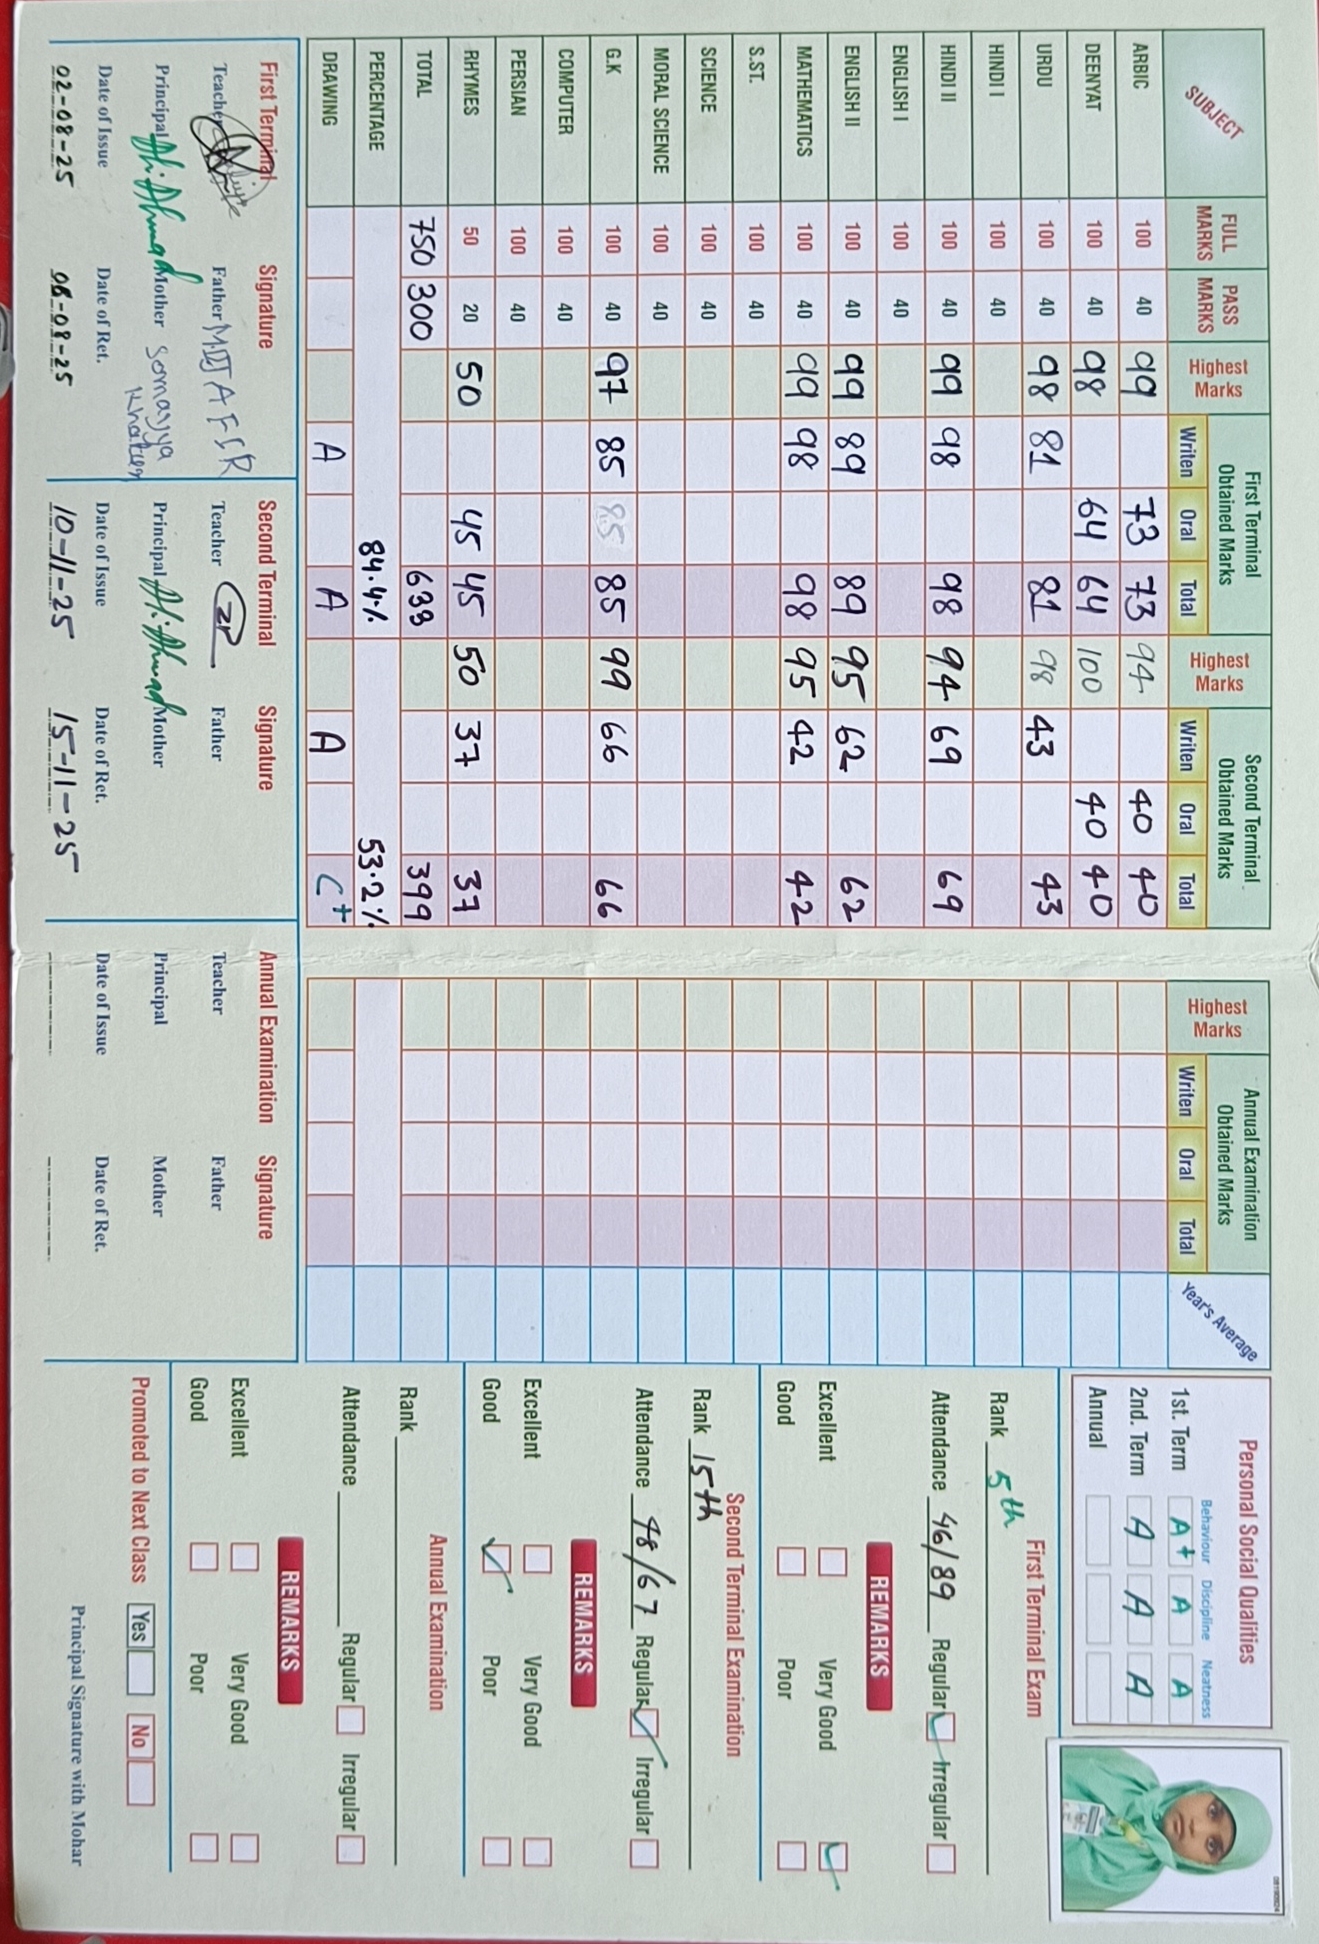 SUBJECT FULL MARKS PASS MARKS Highest Marks First Terminal Obtained Marks Writen Oral Total Highest Marks Second Terminal Obtained Marks Writen Oral Total Highest Marks Annual Examination Obtained Marks Writen Oral Total Year's Average
ARBIC 100 40 99 73 73 94 40 40
DEENYAT 100 40 98 64 64 100 40 40
URDU 100 40 98 81 81 98 43 43
HINDI I 100 40
HINDI II 100 40 99 98 98 94 69 69
ENGLISH I 100 40
ENGLISH II 100 40 99 89 89 95 62 62
MATHEMATICS 100 40 99 98 98 95 42 42
S.ST. 100 40
SCIENCE 100 40
MORAL SCIENCE 100 40
G.K 100 40 97 85 85 85 99 66 66
COMPUTER 100 40
PERSIAN 100 40
RHYMES 50 20 50 45 45 50 37 37
TOTAL 750 300 633 399
PERCENTAGE 84.4% 53.2%
DRAWING A A A C+
First Terminal Signature
Teacher Father
Principal Ali Ahmad Mother Somayya Khatun
Date of Issue Date of Ret.
02-08-25 06-08-25
Second Terminal Signature
Teacher Father
Principal Ali Ahmad Mother
Date of Issue Date of Ret.
10-11-25 15-11-25
Annual Examination Signature
Teacher Father
Principal Mother
Date of Issue Date of Ret.
Personal Social Qualities
Behaviour Discipline Neatness
1st. Term A+ A A
2nd. Term A A A
Annual
First Terminal Exam
Rank 5th
Attendance 46/89 Regular Irregular
REMARKS
Excellent Very Good
Good Poor
Second Terminal Examination
Rank 15th
Attendance 48/67 Regular Irregular
REMARKS
Excellent Very Good
Good Poor
Annual Examination
Rank
Attendance Regular Irregular
REMARKS
Excellent Very Good
Good Poor
Promoted to Next Class Yes No
Principal Signature with Mohar